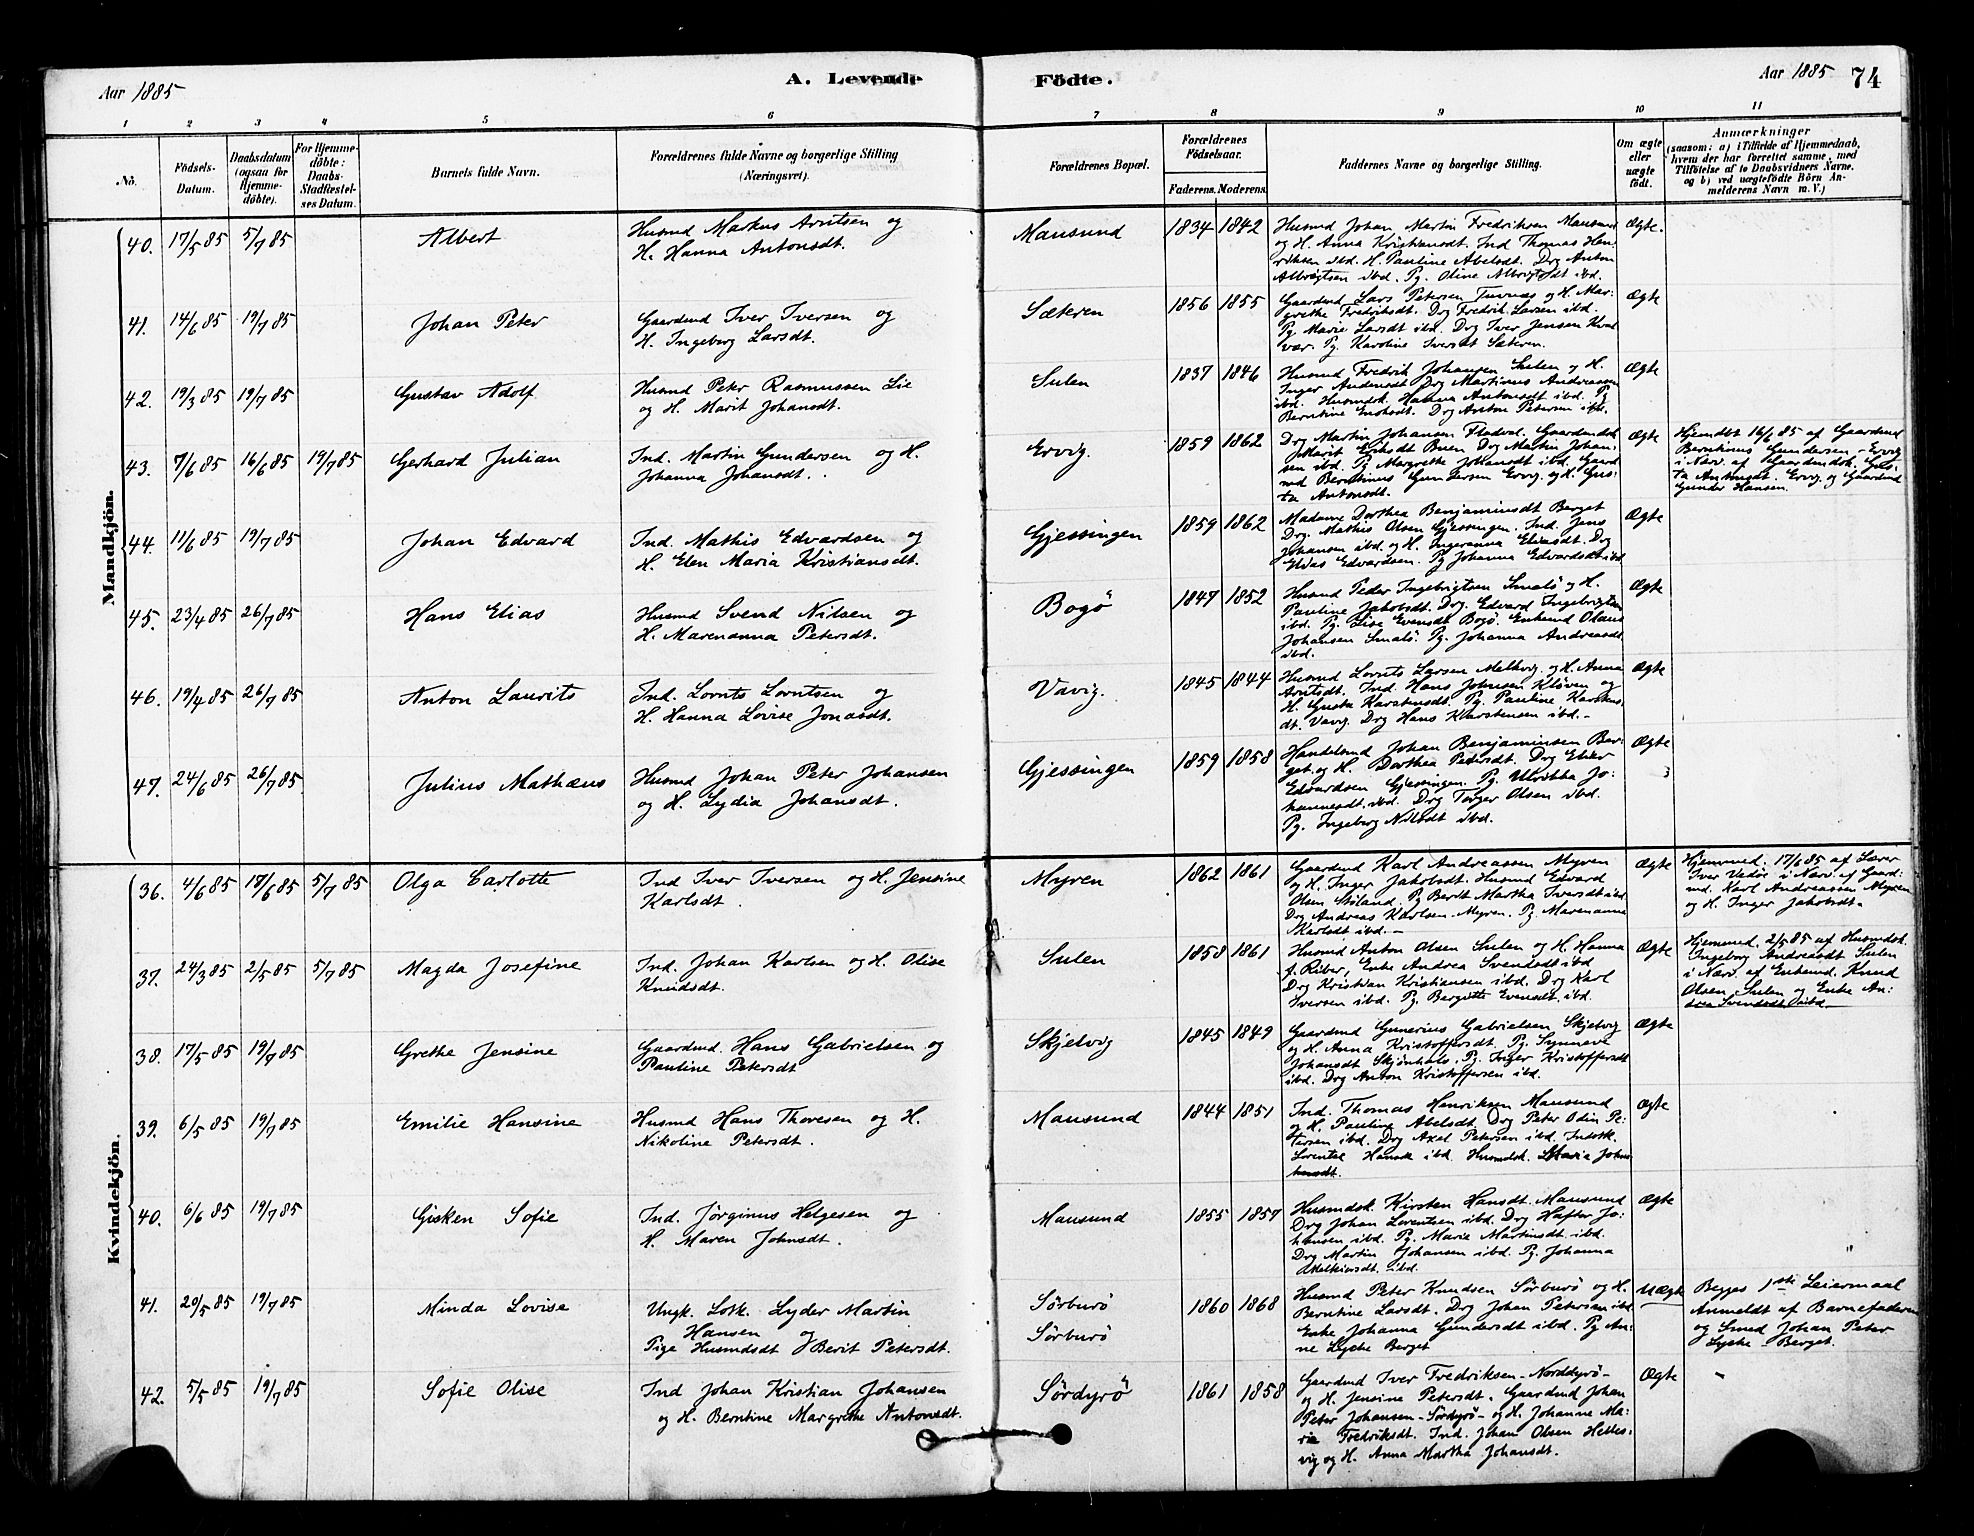 Aar 1885
A. Levende
Födte.
Aar 1885
74
1 2 3 4 5 6 7 8 9 10 11
No.
Födsels-
Datum.
Daabsdatum
(ogsaa for
Hjemme-
döbte).
For Hjemme-
döbte:
Daabs-
Stadfæstel-
ses Datum.
Barnets fulde Navn.
Forældrenes fulde Navne og borgerlige Stilling
(Næringsvei).
Forældrenes Bopæl.
Forældrenes
Födselsaar.
Faderens. Moderens.
Faddernes Navne og borgerlige Stilling.
Om ægte
eller
uægte
födt.
Anmærkninger
(saasom: a) i Tilfælde af Hjemmedaab,
hvem der har forrettet samme, med
Tilföielse af to Daabsvidners Navne,
og b) ved uægtefödte Börn An-
melderens Navn m. V.)
Mandkjön.
40. 17/5 85 5/7 85 Albert
Husmd Markus Arntsen og
H. Hanna Antonsdt.
Mausund 1834 1842
Husmd Johan Martin Fredriksen Mausund
og H. Anna Kristiansdt. Ind Thomas Hen
riksen ibd. H. Pauline Abelsdt. Drg Anton
Albrigtsen ibd. Pg. Oline Albrigtsdt ibd.
Ægte.
41. 14/6 85 19/7 85 Johan Peter
Gaardmd Iver Iversen og
H. Ingeborg Larsdt.
Sæteren 1856 1855
Gaardmd Lars Petersen Tuvnæs og H. Mar:
grethe Fredriksdt. Drg Fredrik Larsen ibd.
Pg. Marie Larsdt ibd. Drg Iver Jensen Kval
vær. Pg. Karoline Iversdt Sæteren.
Ægte
42. 19/3 85 19/7 85 Gustav Adolf
Husmd Peter Rasmussen Lie
og H. Marit Johansdt.
Sulen 1837 1846
Husmd Fredrik Johansen Sulen og H.
Inger Andersdt Drg Martinus Andreasen
ibd. Husmdsk. Hanna Antonsdt ibd. Pg
Berntine Enoksdt. Drg Anton Petersen ibd.
Ægte
43. 7/6 85 16/6 85 19/7 85 Gerhard Julian
Ind. Martin Gundersen og H.
Johanna Johansdt.
Ervig. 1859 1862
Drg Martin Johansen Fladval. Gaardmdsk
Marit Eriksdt Buen Drg Martin Johan:
sen ibd. Pg Margrethe Johansdt ibd. Gaard
md Berntinus Gundersen Ervig. og H. Gus:
ta Antonsdt.
Ægte
Hjemdbt 16/6 85 af Gaardmd
Berntinus Gundersen - Ervig
i Nærv. af Gaardmdsk. Gus-
ta Antonsdt. Ervig og Gaardmd
Gunder Hansen.
44. 11/6 85 19/7 85 Johan Edvard
Ind. Mathis Edvardsen og
H. Elen Maria Kristiansdt.
Gjessingen 1859 1862
Madame Dorthea Benjaminsdt Berget
Drg. Mathis Olsen Gjessingen. Ind. Jens
Johansen ibd. og H. Ingeranna Eliasdt. Drg
Elias Edvardsen. Pg Johanna Edvardsdt ibd.
Ægte
45. 23/4 85 26/7 85 Hans Elias
Husmd Svend Nilsen og
H. Marenanna Petersdt.
Bogö 1847 1852
Husmd Peder Ingebrigtsen Smalö og H.
Pauline Jakobsdt. Drg. Edvard Ingebrigtsen
ibd. Pg. Lise Evensdt Bogö. Enkemd Olaus
Johansen Smalö. Pg. Johanna Andreasdt
ibd.
Ægte
46. 19/4 85 26/7 85 Anton Laurits
Ind. Lornts Lorntsen og
H. Hanna Lovise Jonasdt.
Vavig. 1845 1844
Husmd Lornts Larsen Melkvig. og H. Anna
Arntsdt. Ind. Hans Johnsen Kløven og
H. Gusta Karstensdt. Pg. Pauline Karstens:
dt. Vavig. Drg Hans Karstensen ibd. -
Ægte
47. 24/6 85 26/7 85 Julius Mathæus
Husmd Johan Peter Johansen
og H. Lydia Johansdt.
Gjessingen 1859 1858
Handelsmd Johan Benjaminsen Ber:
get. og H. Dorthea Petersdt. Drg Elier
Edvardsen Gjessingen. Pg. Ulrikka Jo:
hannesdt. ibd. Drg Torger Olsen ibd.
Pg. Ingeborg Nilsdt ibd.
Ægte
Kvindekjön.
36. 4/6 85 17/6 85 5/7 85 Olga Carlotte
Ind Iver Iversen og H. Jensine
Karlsdt.
Myren 1862 1861
Gaardmd Karl Andreassen Myren
og H. Inger Jakobsdt. Husmd Edvard
Olsen Støland. Pg Berit Martha Iversdt ibd
Drg Andreas Karlsen Myren. Pg. Marenanna
Karlsdt ibd. -
Ægte
Hjemmed. 17/6 85 af Lærer
Iver Vedø i Nærv. af Gaard:
md. Karl Andreassen Myren
og H. Inger Jakobsdt -
37. 24/3 85 2/5 85 5/7 85 Magda Josefine
Ind. Johan Karlsen og H. Olise
Knudsdt.
Sulen 1858 1861
Husmd Anton Olsen Sulen og H. Hanna
f. Riber, Enke Andrea Svendsdt ibd
Drg Kristian Kristiansen ibd. Drg Karl
Iversen ibd. Pg. Bergitte Evensdt. ibd.
Ægte
Hjemmed. 2/5 85 af Husmdsk.
Ingeborg Andreasdt Sulen
i Nærv. af Enkemd. Knud
Olsen Sulen og Enke An:
drea Svendsdt ibd
38. 17/5 85 19/7 85 Grethe Jensine
Gaardmd. Hans Gabrielsen og
Pauline Petersdt
Skjelvig 1845 1849
Gaardmd Gunerius Gabrielsen Skjelvig
og H. Anna Kristoffersdt. Pg. Synneve
Johansdt Skjønhals. Pg. Inger Kristoffersdt
ibd. Drg Anton Kristoffersen ibd.
Ægte
39. 6/5 85 19/7 85 Emilie Hansine
Husmd Hans Thoresen og H.
Nikoline Petersdt.
Mausund 1844 1851
Ind. Thomas Henriksen Mausund
og H. Pauline Abelsdt. Drg Peter Odin Pe:
tersen ibd. Drg Axel Petersen ibd. Indsk.
Lorentse Hansdt ibd. Husmdsk. Maria Johns
Ægte
40. 6/6 85 19/7 85 Gisken Sofie
Ind. Jørginus Helgesen og
H. Maren Johnsdt.
Mausund 1855 1857
Husmdsk. Kirsten Hansdt. Mausund
Drg Johan Lorentsen ibd. Drg Hafter Jo:
hansen ibd. Pg. Marie Martinsdt ibd.
Drg Martin Johansen ibd. Pg. Johanna
ibd.
Ægte
41. 20/5 85 19/7 85 Minda Lovise
Ungk. Losk. Lyder Martin
Hansen og
Pige Husmdsdt Berit Petersdt.
Sörburö
Sörburö
1860 1868
Husmd Peter Knudsen Sörburö og H.
Berntine Larsdt. Drg Johan Petersen ibd
Enke Johanna Gundersdt ibd. Pg An:
ne Lyche Berget
Uægte
Begges 1ste Leiermaal
Anmeldt af Barnefaderen
og Smed Johan Peter
Lyche Berget.
42. 5/5 85 19/7 85 Sofie Olise
Ind Johan Kristian Johansen
og H. Berntine Margrethe Antonsdt.
Sördyrö 1861 1858
Gaardmd Iver Fredriksen - Norddyrö -
og H. Jensine Petersdt. Gaardmd Johan
Peter Johansen - Sördyrö - og H. Johanne Ma:
rie Fredriksdt. Ind. Johan Olsen Helles:
vig og H. Anna Martha Johansdt.
Ægte